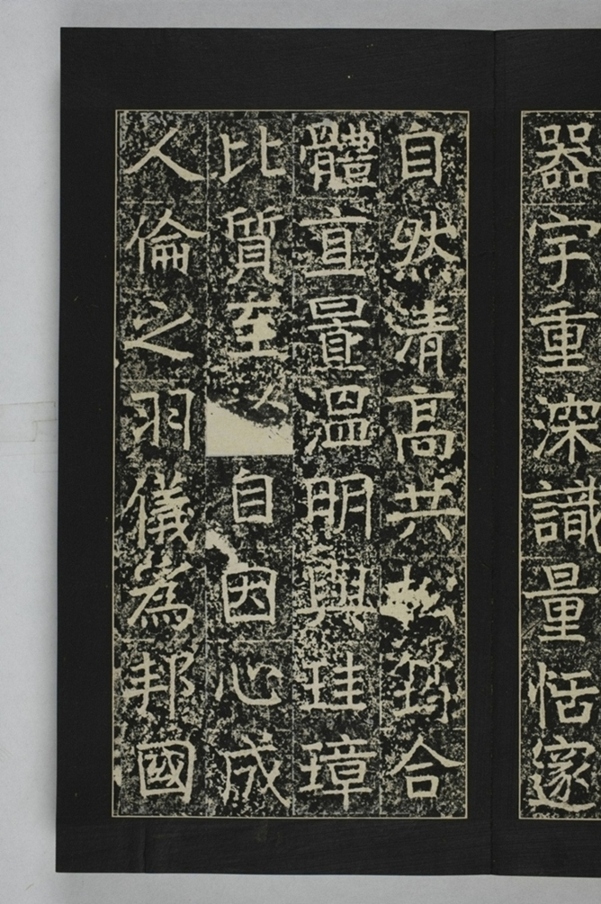 器宇重深識量恬邃
自然清高共松筠合
體直置溫明與珪璋
比質至自因心成
人倫之羽儀為邦國